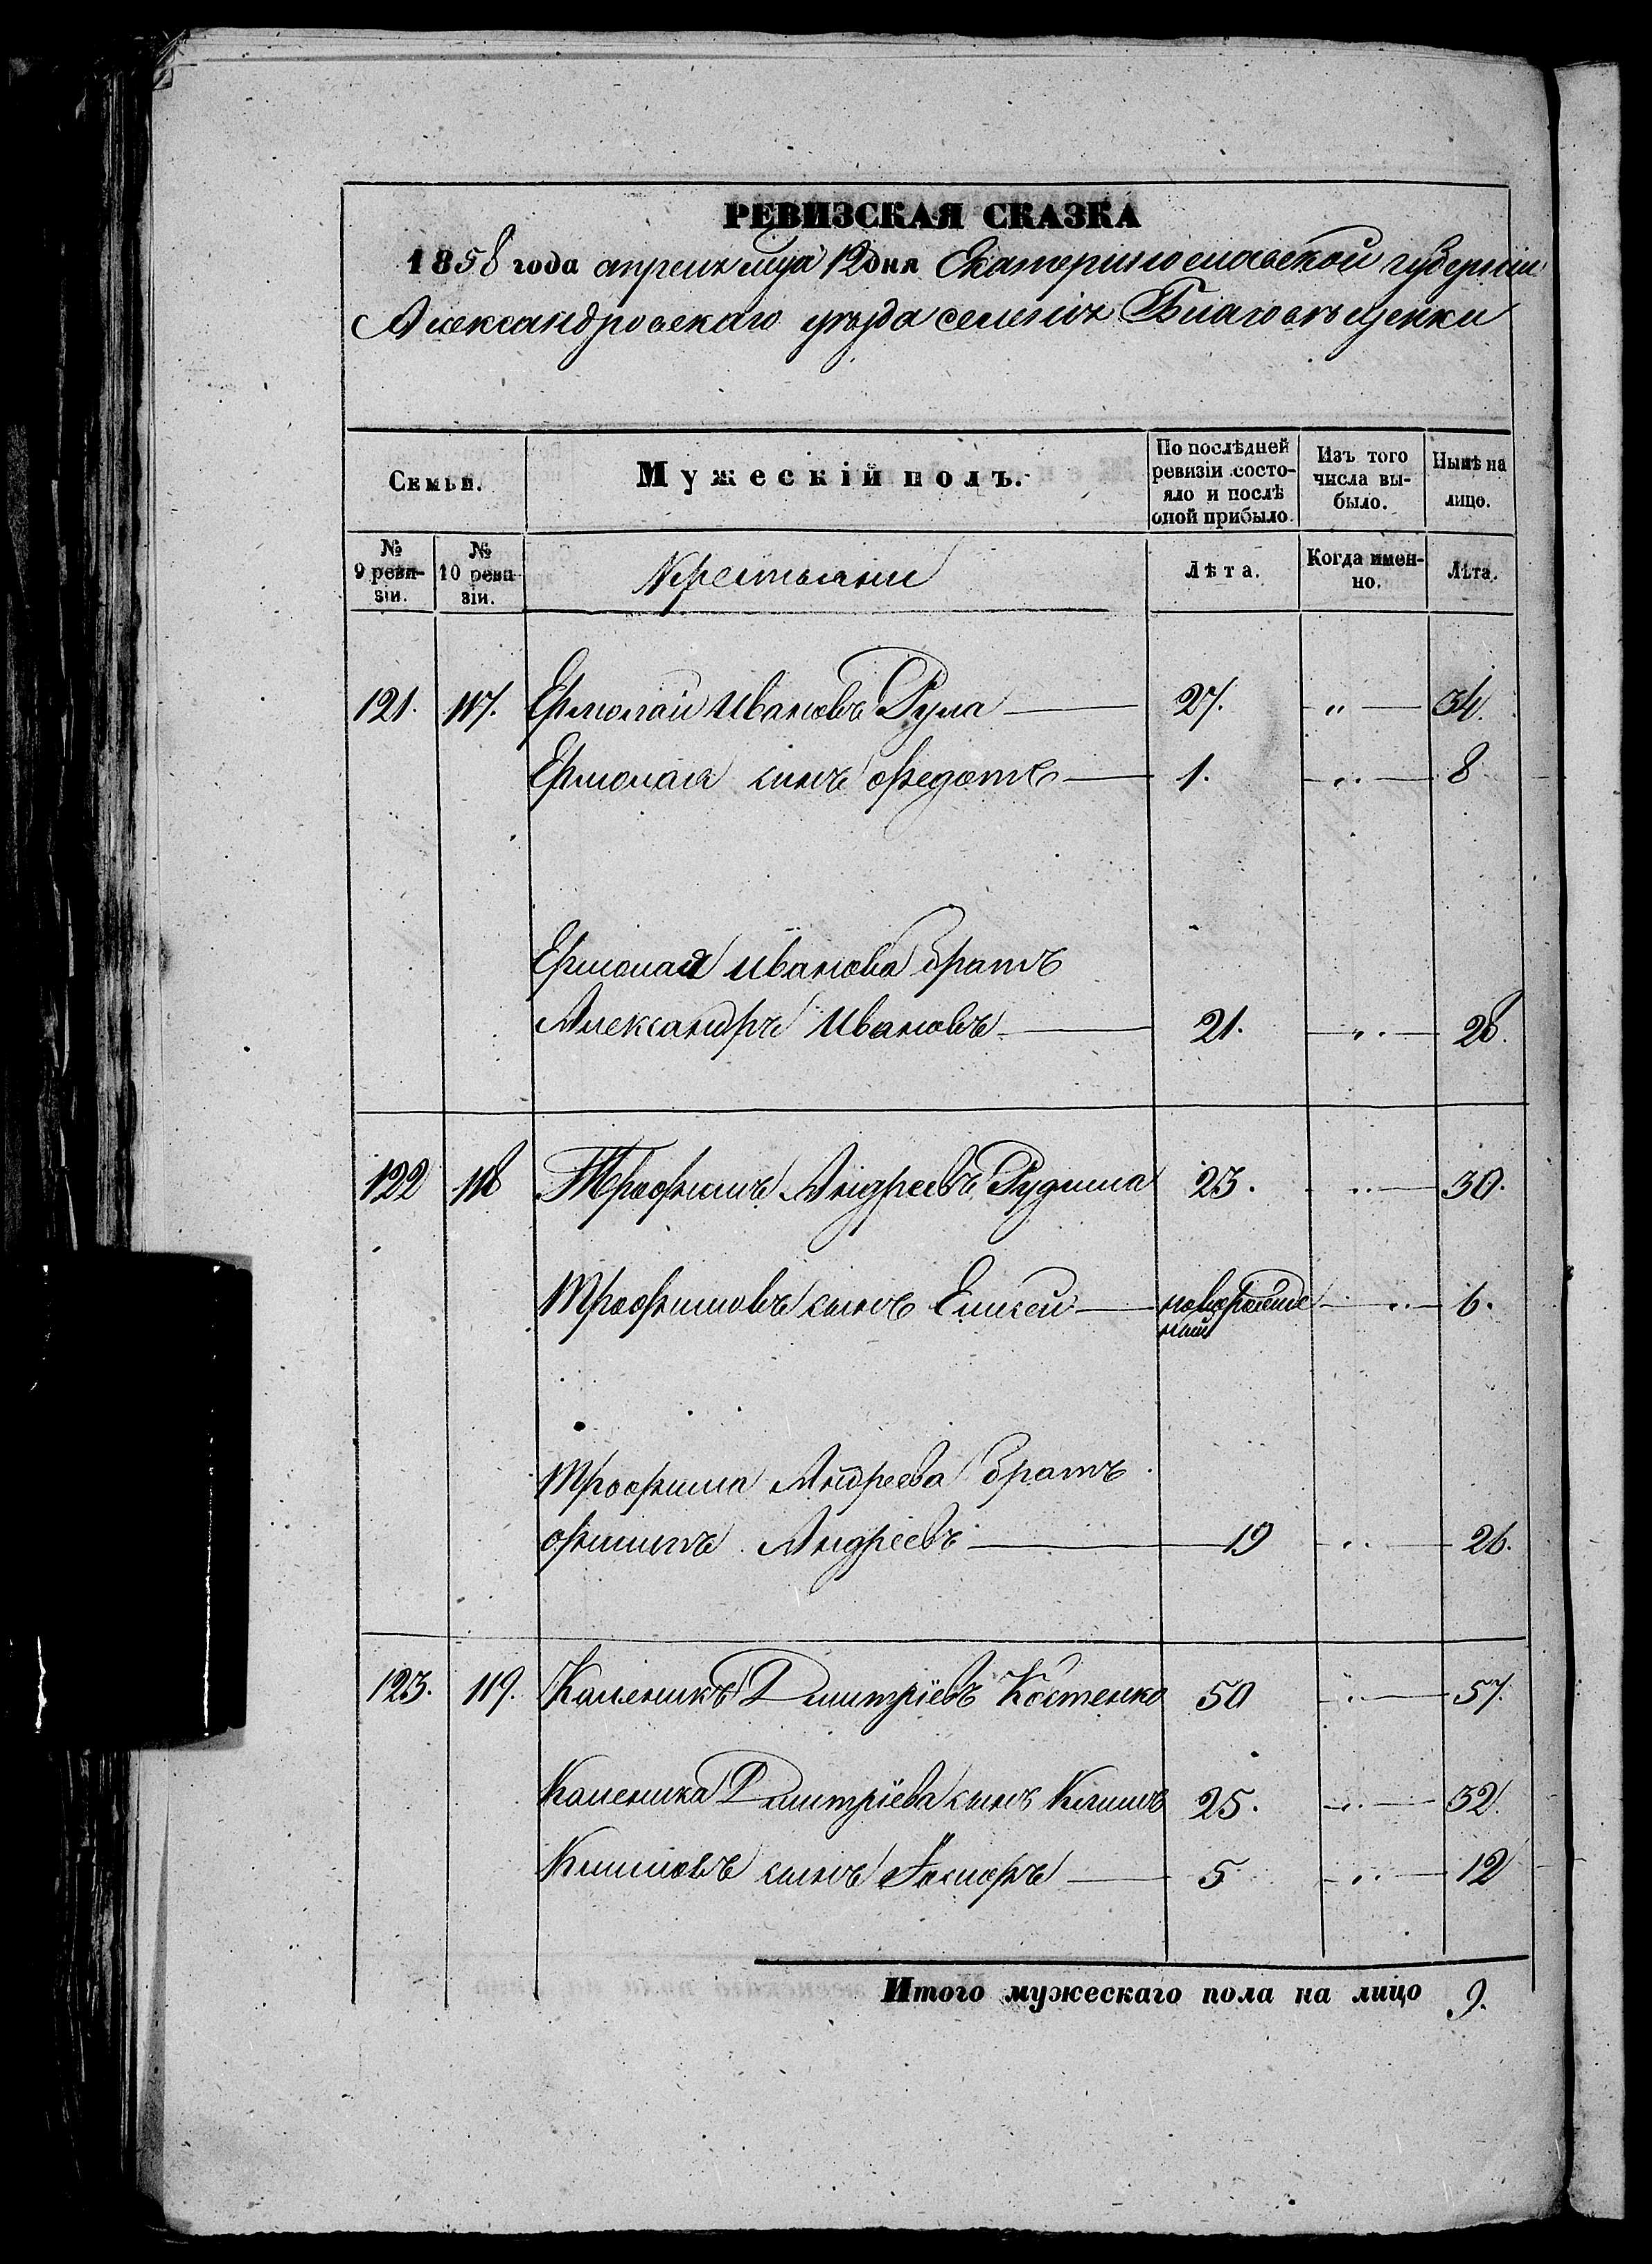 РЕВИЗСКАЯ СКАЗКА
1858 года апреля мца 12 дня Екатеринославской губернии
Александровскаго уезда селения Благовещенки
Семьи.
Мужескій полъ.
По послѣдней ревизіи состояло и послѣ оной прибыло.
Изъ того числа выбыло.
Нынѣ на лицо.
№ 9 ревизіи.
№ 10 ревизіи.
Крестьяне
Лѣта.
Когда именно.
Лѣта.
121. 117. Ермолай Ивановъ Рула 27. " 34.
Ермолая сынъ Федотъ 1. " 8
Ермолая Иванова братъ
Александръ Ивановъ 21. " 28.
122 118 Трофимъ Андреевъ Рудима 23. " 30.
Трофимовъ сынъ Елисей новорожде " 6.
ный
Трофима Андреева братъ
Филипъ Андреевъ 19 " 26.
123. 119. Каленикъ Дмитріевъ Костенко 50 " 57.
Каленика Дмитріева сынъ Климъ 25. " 32.
Климовъ сынъ Іосифъ 5 " 12
Итого мужескаго пола на лицо 9.